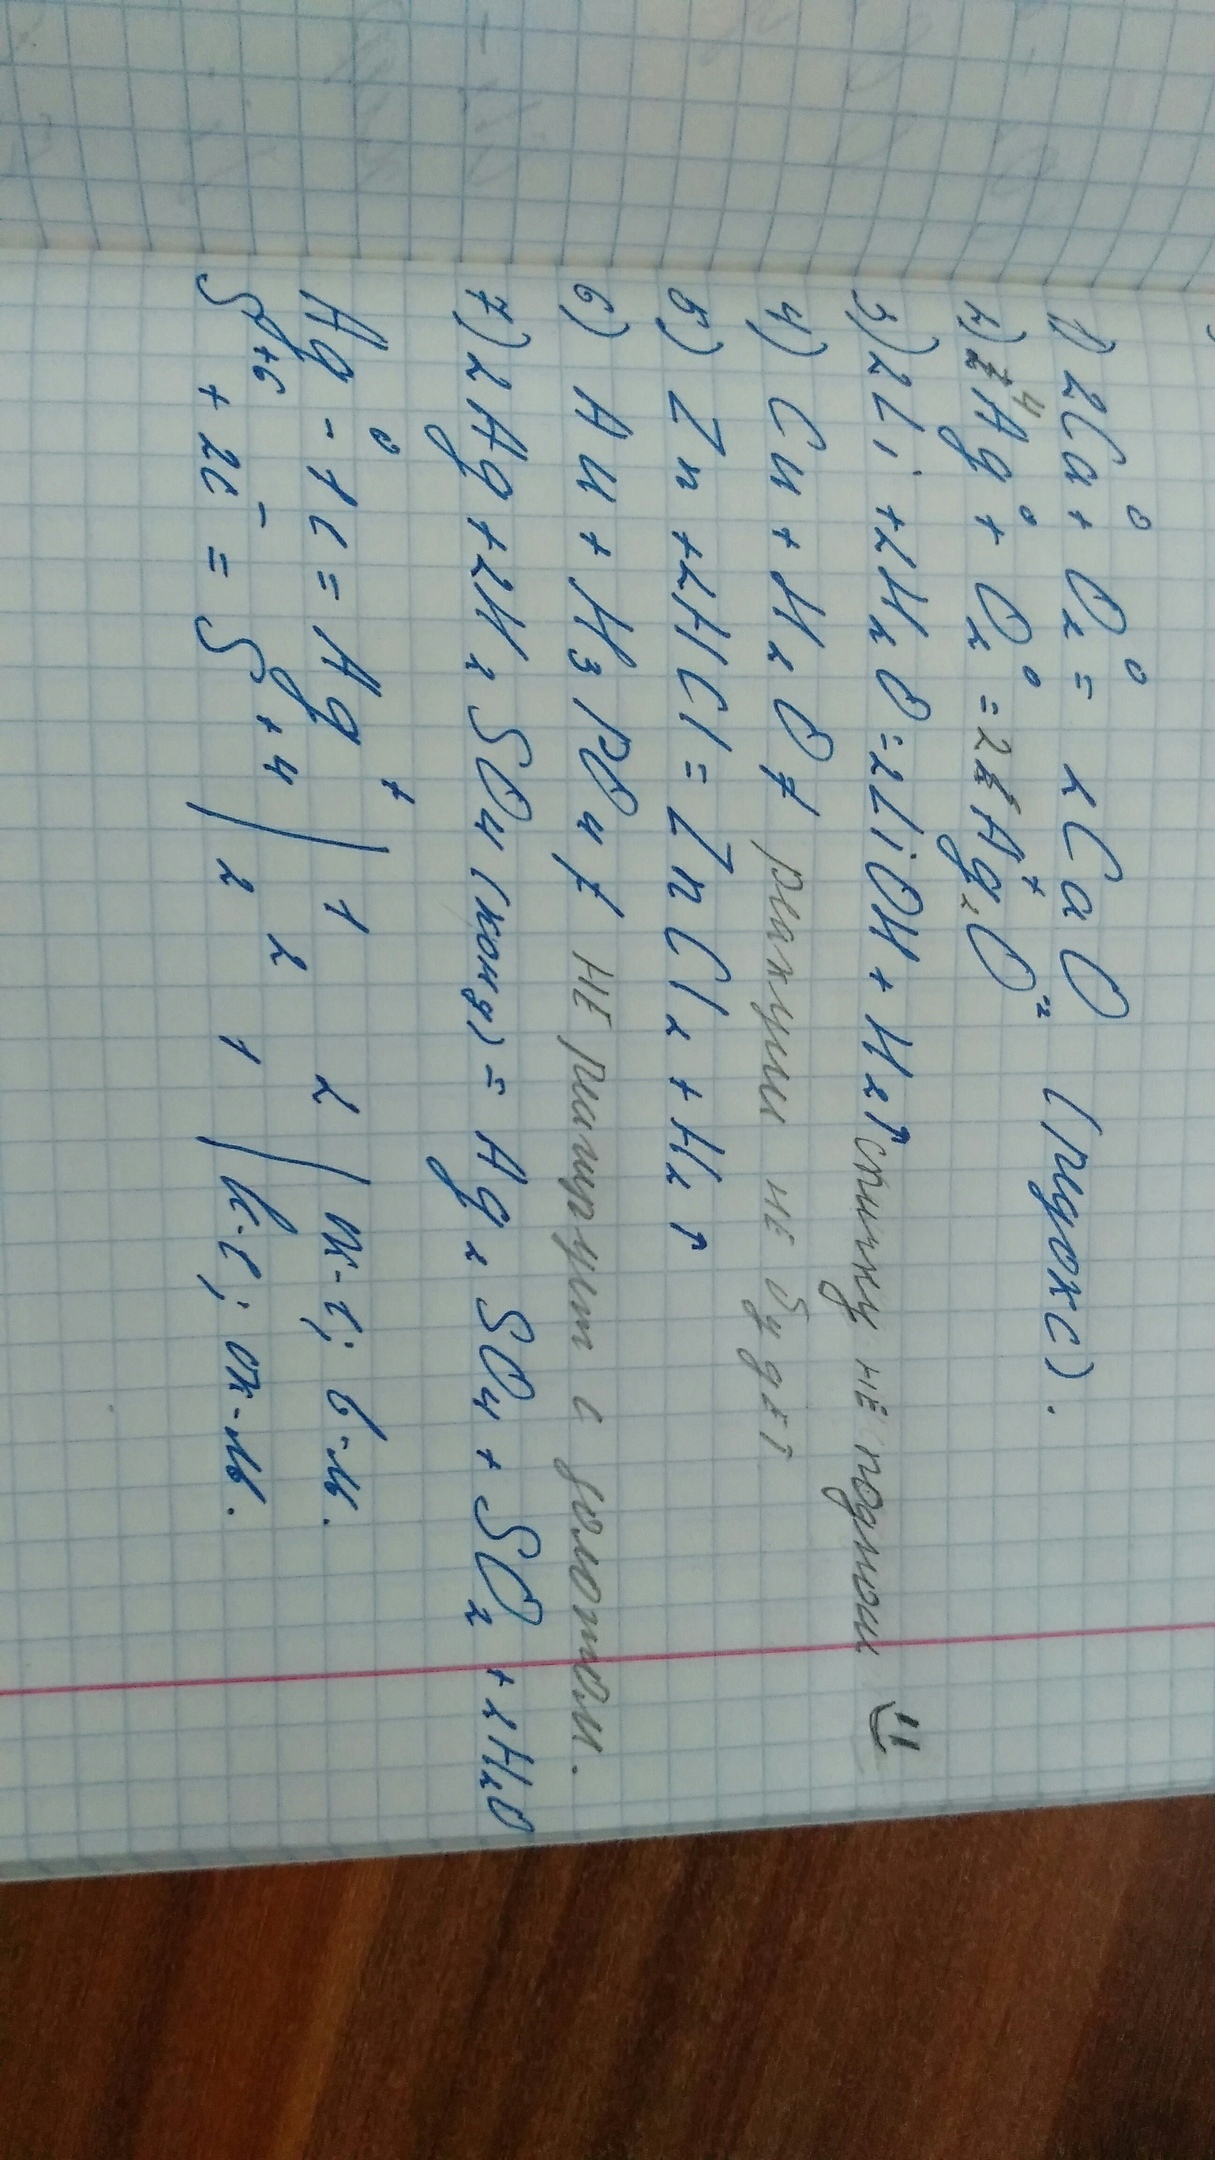 1) 2Ca⁰ + O₂⁰ = 2CaO (редокс).
2) 4Ag⁰ + O₂⁰ = 2Ag₂⁺O⁻²
3) 2Li + 2H₂O = 2LiOH + H₂↑ спичку не подноси :)
4) Cu + H₂O ≠ реакции не будет
5) Zn + 2HCl = ZnCl₂ + H₂↑
6) Au + H₃PO₄ ≠ не реагирует с золотом.
7) 2Ag + 2H₂SO₄ (конц) = Ag₂SO₄ + SO₂ + 2H₂O
Ag⁰ - 1e = Ag⁺ | 1 2 2 | ок-е; в-ль.
S⁺⁶ + 2e⁻ = S⁺⁴ | 2 1 | в-е; ок-ль.